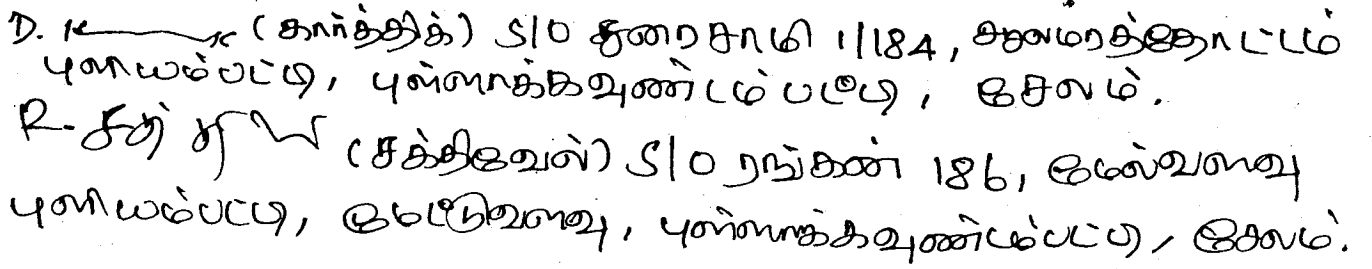 D. K (கார்த்திக்) S/O துரைசாமி 1/184, ஆலமரத்தோட்டம்
புளியம்பட்டி, புள்ளாக்கவுண்டம்பட்டி, சேலம்.
R. சக்திவேல் (சக்திவேல்) S/O ரங்கன் 186, மேல்வளவு
புளியம்பட்டி, மேட்டுவளவு, புள்ளாக்கவுண்டம்பட்டி, சேலம்.